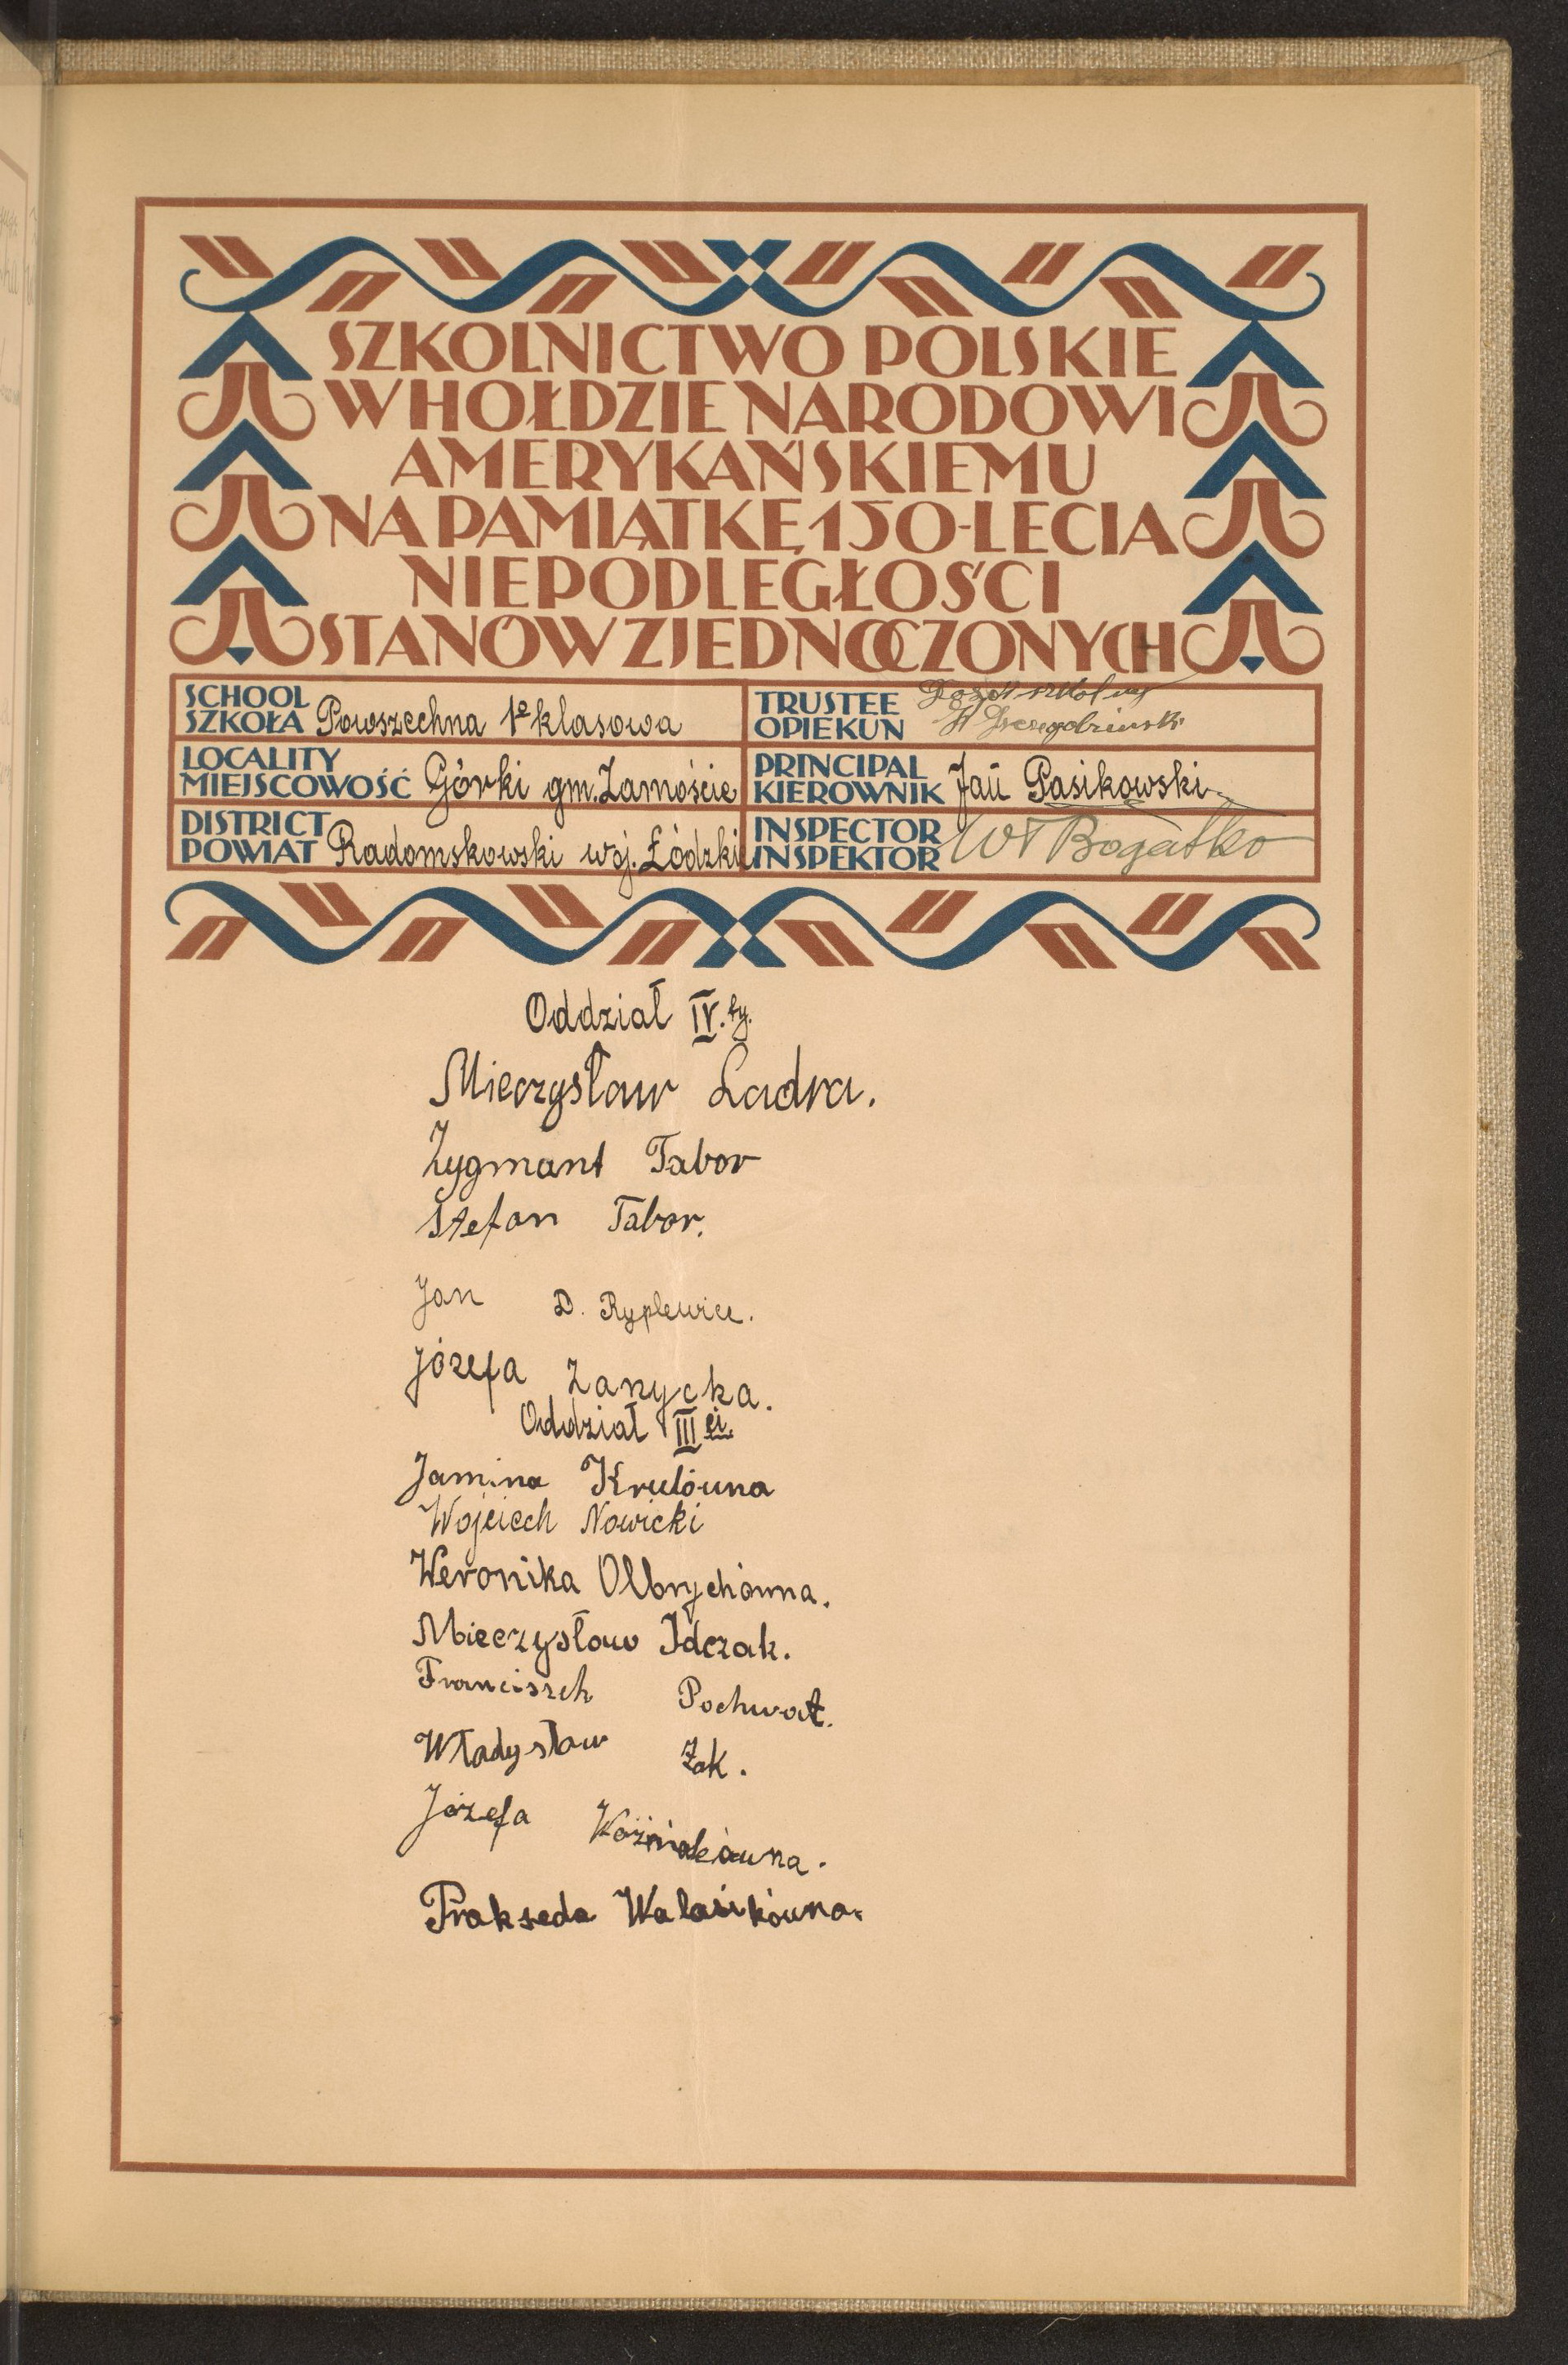 SZKOLNICTWO POLSKIE
W HOŁDZIE NARODOWI
AMERYKAŃSKIEMU
NA PAMIĄTKĘ 150-LECIA
NIEPODLEGŁOŚCI
STANÓW ZJEDNOCZONYCH
SCHOOL
SZKOŁA Powszechna 1º klasowa
TRUSTEE
OPIEKUN
LOCALITY
MIEJSCOWOŚĆ Górki gm. Zamoście
PRINCIPAL
KIEROWNIK Jan Pasikowski
DISTRICT
POWIAT Radomskowski woj. Łódzki
INSPECTOR
INSPEKTOR Wł Bogatko
Oddział IV.ty.
Mieczysław Ladra.
Zygmunt Tabor
Stefan Tabor.
Jan D. Ryplewicz.
Józefa Zanycka.
Oddział III ci.
Jamina Królówna
Wojciech Nowicki
Weronika Olbrychówna.
Mieczysław Idczak.
Franciszek Pochwat.
Władysław Żak.
Józefa
Prakseda Walasikówna.